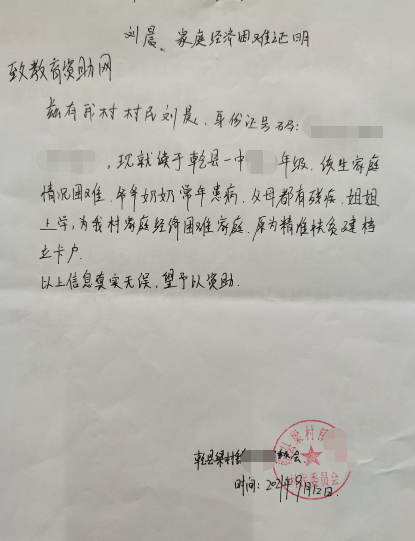 刘晨、家庭经济困难证明
致教育资助网
兹有我村村民刘晨、身份证号码:
,现就读于乾县一中 年级.该生家庭
情况困难.爷爷奶奶常年患病.父母都有残疾.姐姐
上学,为我村家庭经济困难家庭.原为精准扶贫建档
立卡户.
以上信息真实无误,望予以资助.
乾县梁村镇 委会
时间:2021年9月12日.
乾县梁村镇
村民委员会